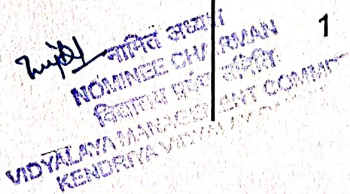 1
नामित अध्यक्ष
NOMINEE CHAIRMAN
विद्यालय प्रबंध समिति
VIDYALAYA MANAGEMENT COMMIT
KENDRIYA VIDYALAYA